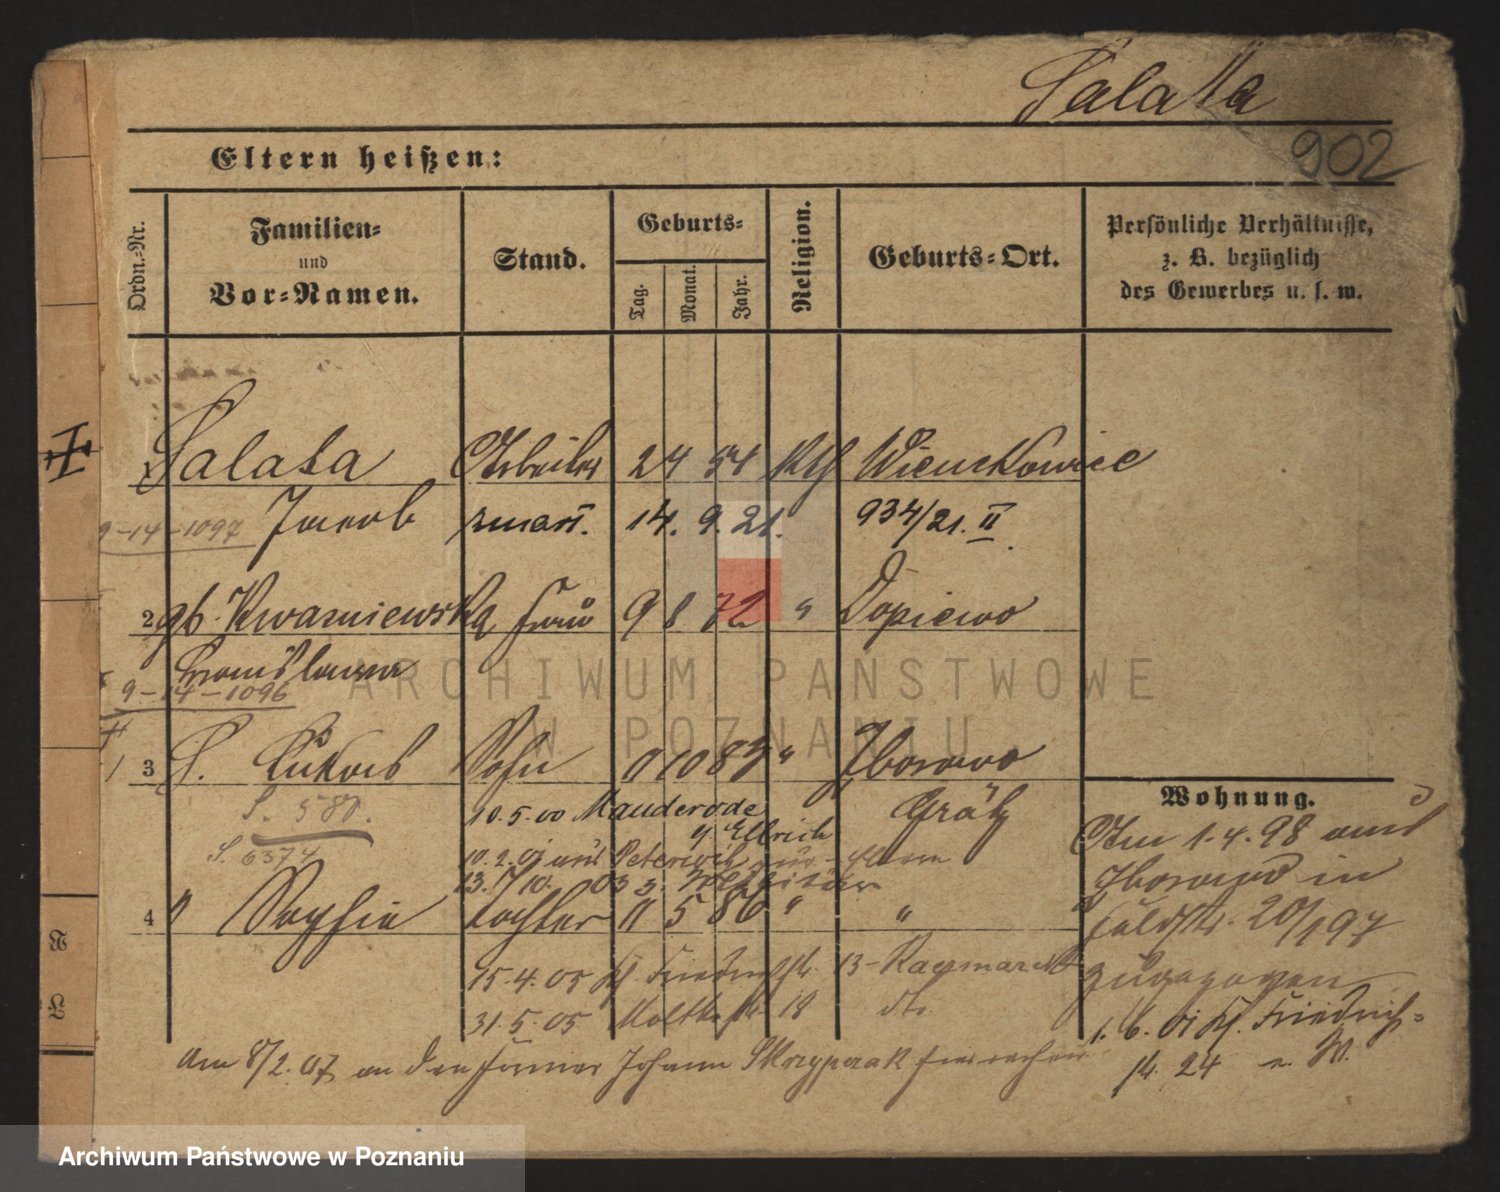 Salata
902
Eltern heißen:
Ordn.-Nr.
Familien-
und
Vor-Namen.
Stand.
Geburts-
Tag.
Monat.
Jahr.
Religion.
Geburts-Ort.
Persönliche Verhältnisse,
z. B. bezüglich
des Gewerbes u. s. w.
Salata Arbeiter 24 54 Kth Wienckowice
9-14-1097 Jacob zmarł. 14. 9. 21. 934/21. II
2 gb. Kwasniewska Frau 9 8 72 " Dopiewo
Bronislawa
9-14-1096
3 S. Jakob Sohn 9 10 83 " Zborowo
S. 580. 10.5.00 Mauderode Grätz
g. Ellrich
S. 6374 10.2.01 aus
13. 03 z. Militär
4 " Sophie Tochter 11 5 86 " "
15.4.05 Kl. Friedrichstr. 13 -
31.5.05 Moltkestr. 18 dto
Am 8/2.07 an den Johann Skrzypczak
Wohnung.
Am 1.4.98 aus
Zborowo in
Feldstr. 20/197
zugezogen
1. 6. 01 Kl. Friedrich-
str. 24
ARCHIWUM PAŃSTWOWE
W POZNANIU
Archiwum Państwowe w Poznaniu